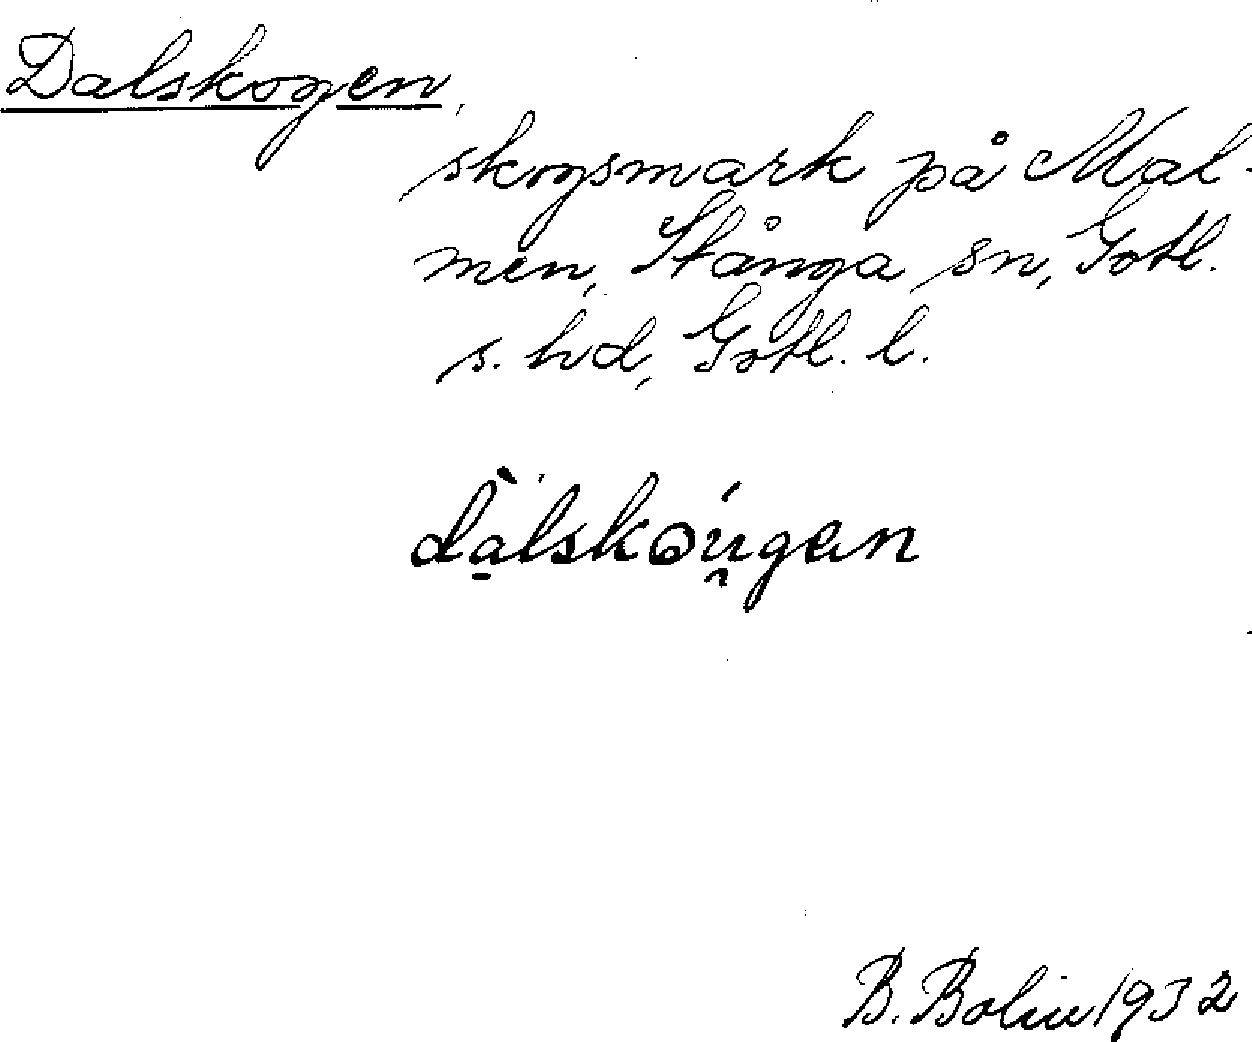 Dalskogen,
skogsmark på Mal-
men, Stånga sn, Gotl.
s. hd, Gotl. l.
dà̱lskɷú̯gan
B. Bolin 1932